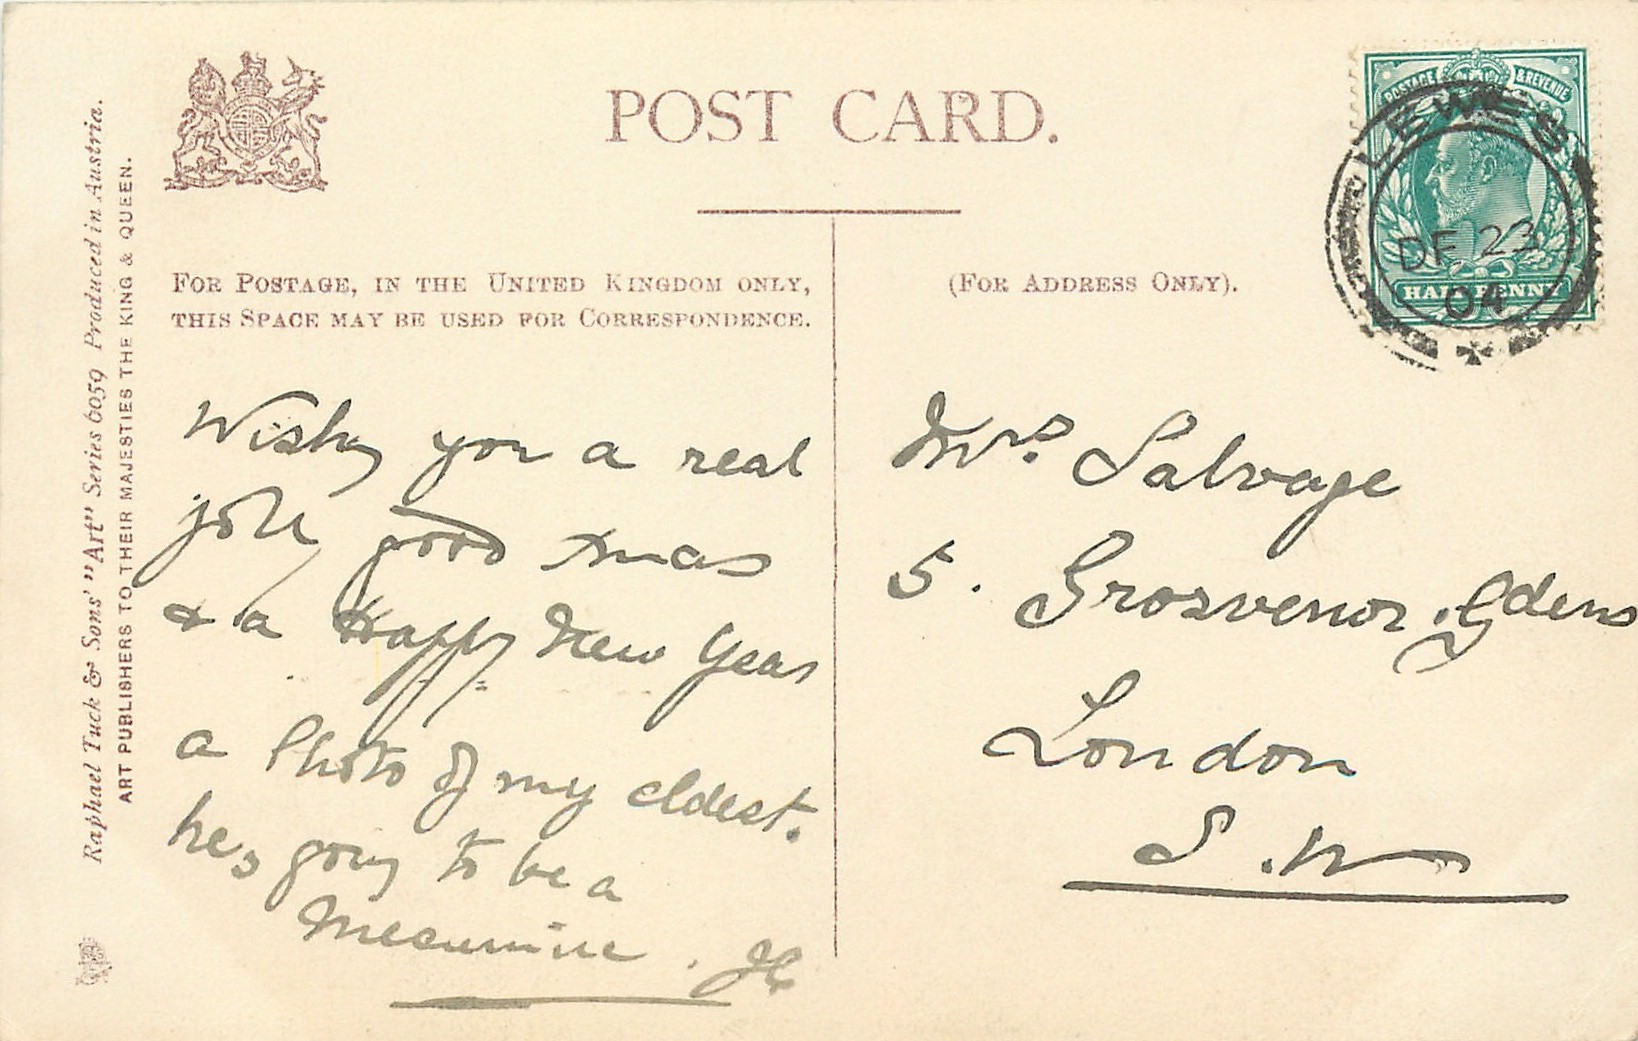 POST CARD.
FOR POSTAGE, IN THE UNITED KINGDOM ONLY,
THIS SPACE MAY BE USED FOR CORRESPONDENCE.
(FOR ADDRESS ONLY).
Raphael Tuck & Sons' "Art" Series 6059 Produced in Austria.
ART PUBLISHERS TO THEIR MAJESTIES THE KING & QUEEN.
POSTAGE & REVENUE
HALFPENNY
LEWES
DE 23
04
Wishing you a real
jolly good Xmas
& a Happy New Year
a Photo of my eldest.
he's going to be a
Mrs. Salvage
5. Grosvenor Gdens
London
S.W